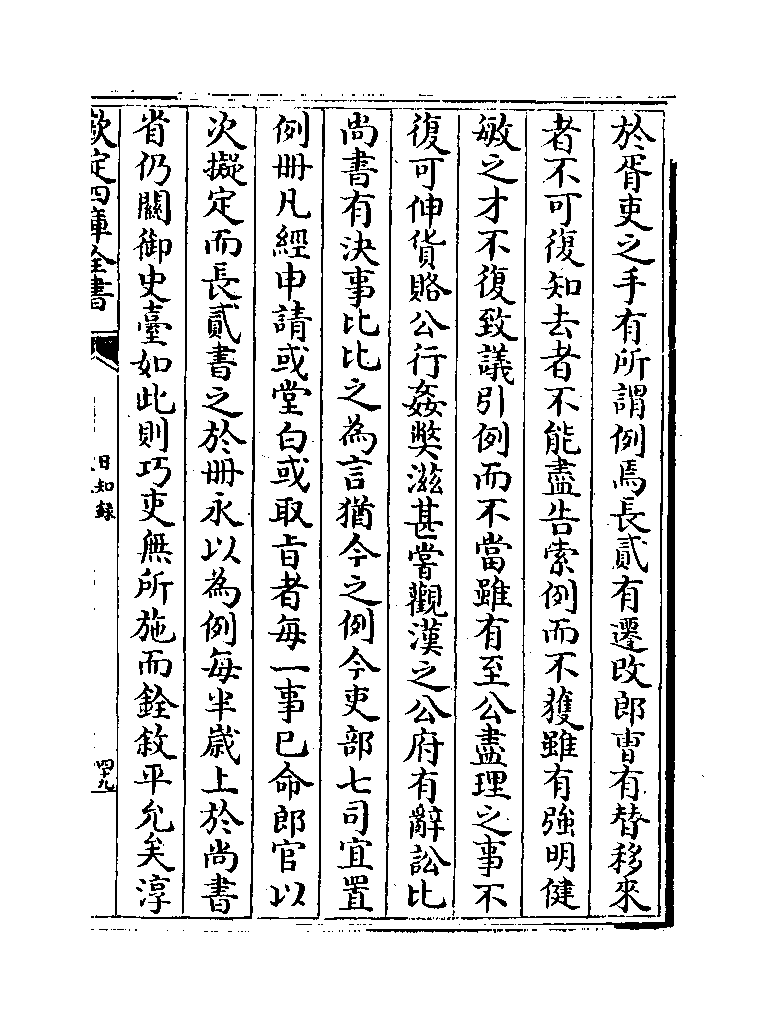 於胥吏之手有所謂例焉長貳有遷改郎曹有替移來
者不可復知去者不能盡告索例而不獲雖有強明健
敏之才不復致議引例而不當雖有至公盡理之事不
復可伸貨賂公行姦獘滋甚嘗觀漢之公府有辭訟比
尚書有決事比比之為言猶今之例今吏部七司宜置
例冊凡經申請或堂白或取旨者每一事已命郎官以
次擬定而長貳書之於冊永以為例每半歲上於尚書
省仍關御史臺如此則巧吏無所施而銓敘平允矣淳
欽定四庫全書
日知錄
四十九